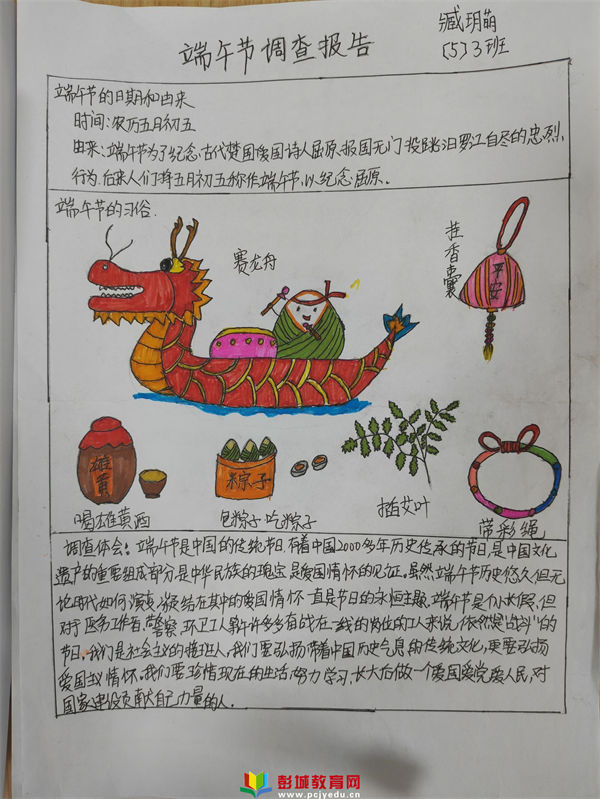 端午节调查报告
臧玥萌
(5)3班
端午节的日期和由来
时间:农历五月初五
由来:端午节为了纪念古代楚国爱国诗人屈原报国无门投跳汨罗江自尽的忠烈
行为.后来人们将五月初五称作端午节,以纪念屈原.
端午节的习俗:
赛龙舟
挂香囊
平安
雄黄
粽子
喝雄黄酒
包粽子吃粽子
插艾叶
带彩绳
调查体会:端午节是中国的传统节日.有着中国2000多年历史传承的节日,是中国文化
遗产的重要组成部分是中华民族的瑰宝是爱国情怀的见证。虽然端午节历史悠久但无
论时代如何演变,凝结在其中的爱国情怀一直是节日的永恒主题.端午节是个小长假,但
对于医务工作者、警察、环卫工人等许许多多奋战在一线的岗位的工人来说,依然是"战斗"的
节日.我们是社会主义的接班人,我们要弘扬带着中国历史气息的传统文化,更要弘扬
爱国主义情怀.我们要珍惜现在的生活,努力学习,长大后做一个爱国爱党爱人民,对
国家建设贡献自己力量的人.
彭城教育网
www.pcjyedu.cn